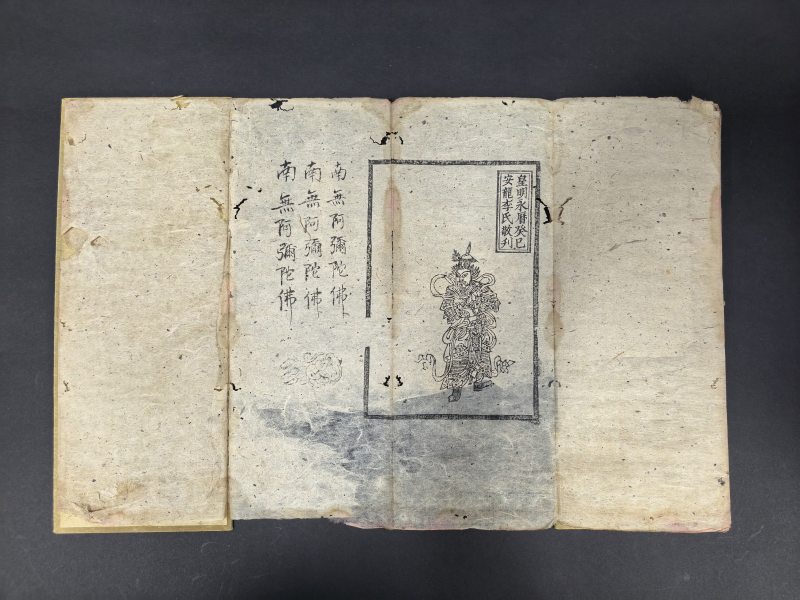 皇明永曆癸巳
安龍李氏敬刋
南無阿彌陀佛
南無阿彌陀佛
南無阿彌陀佛